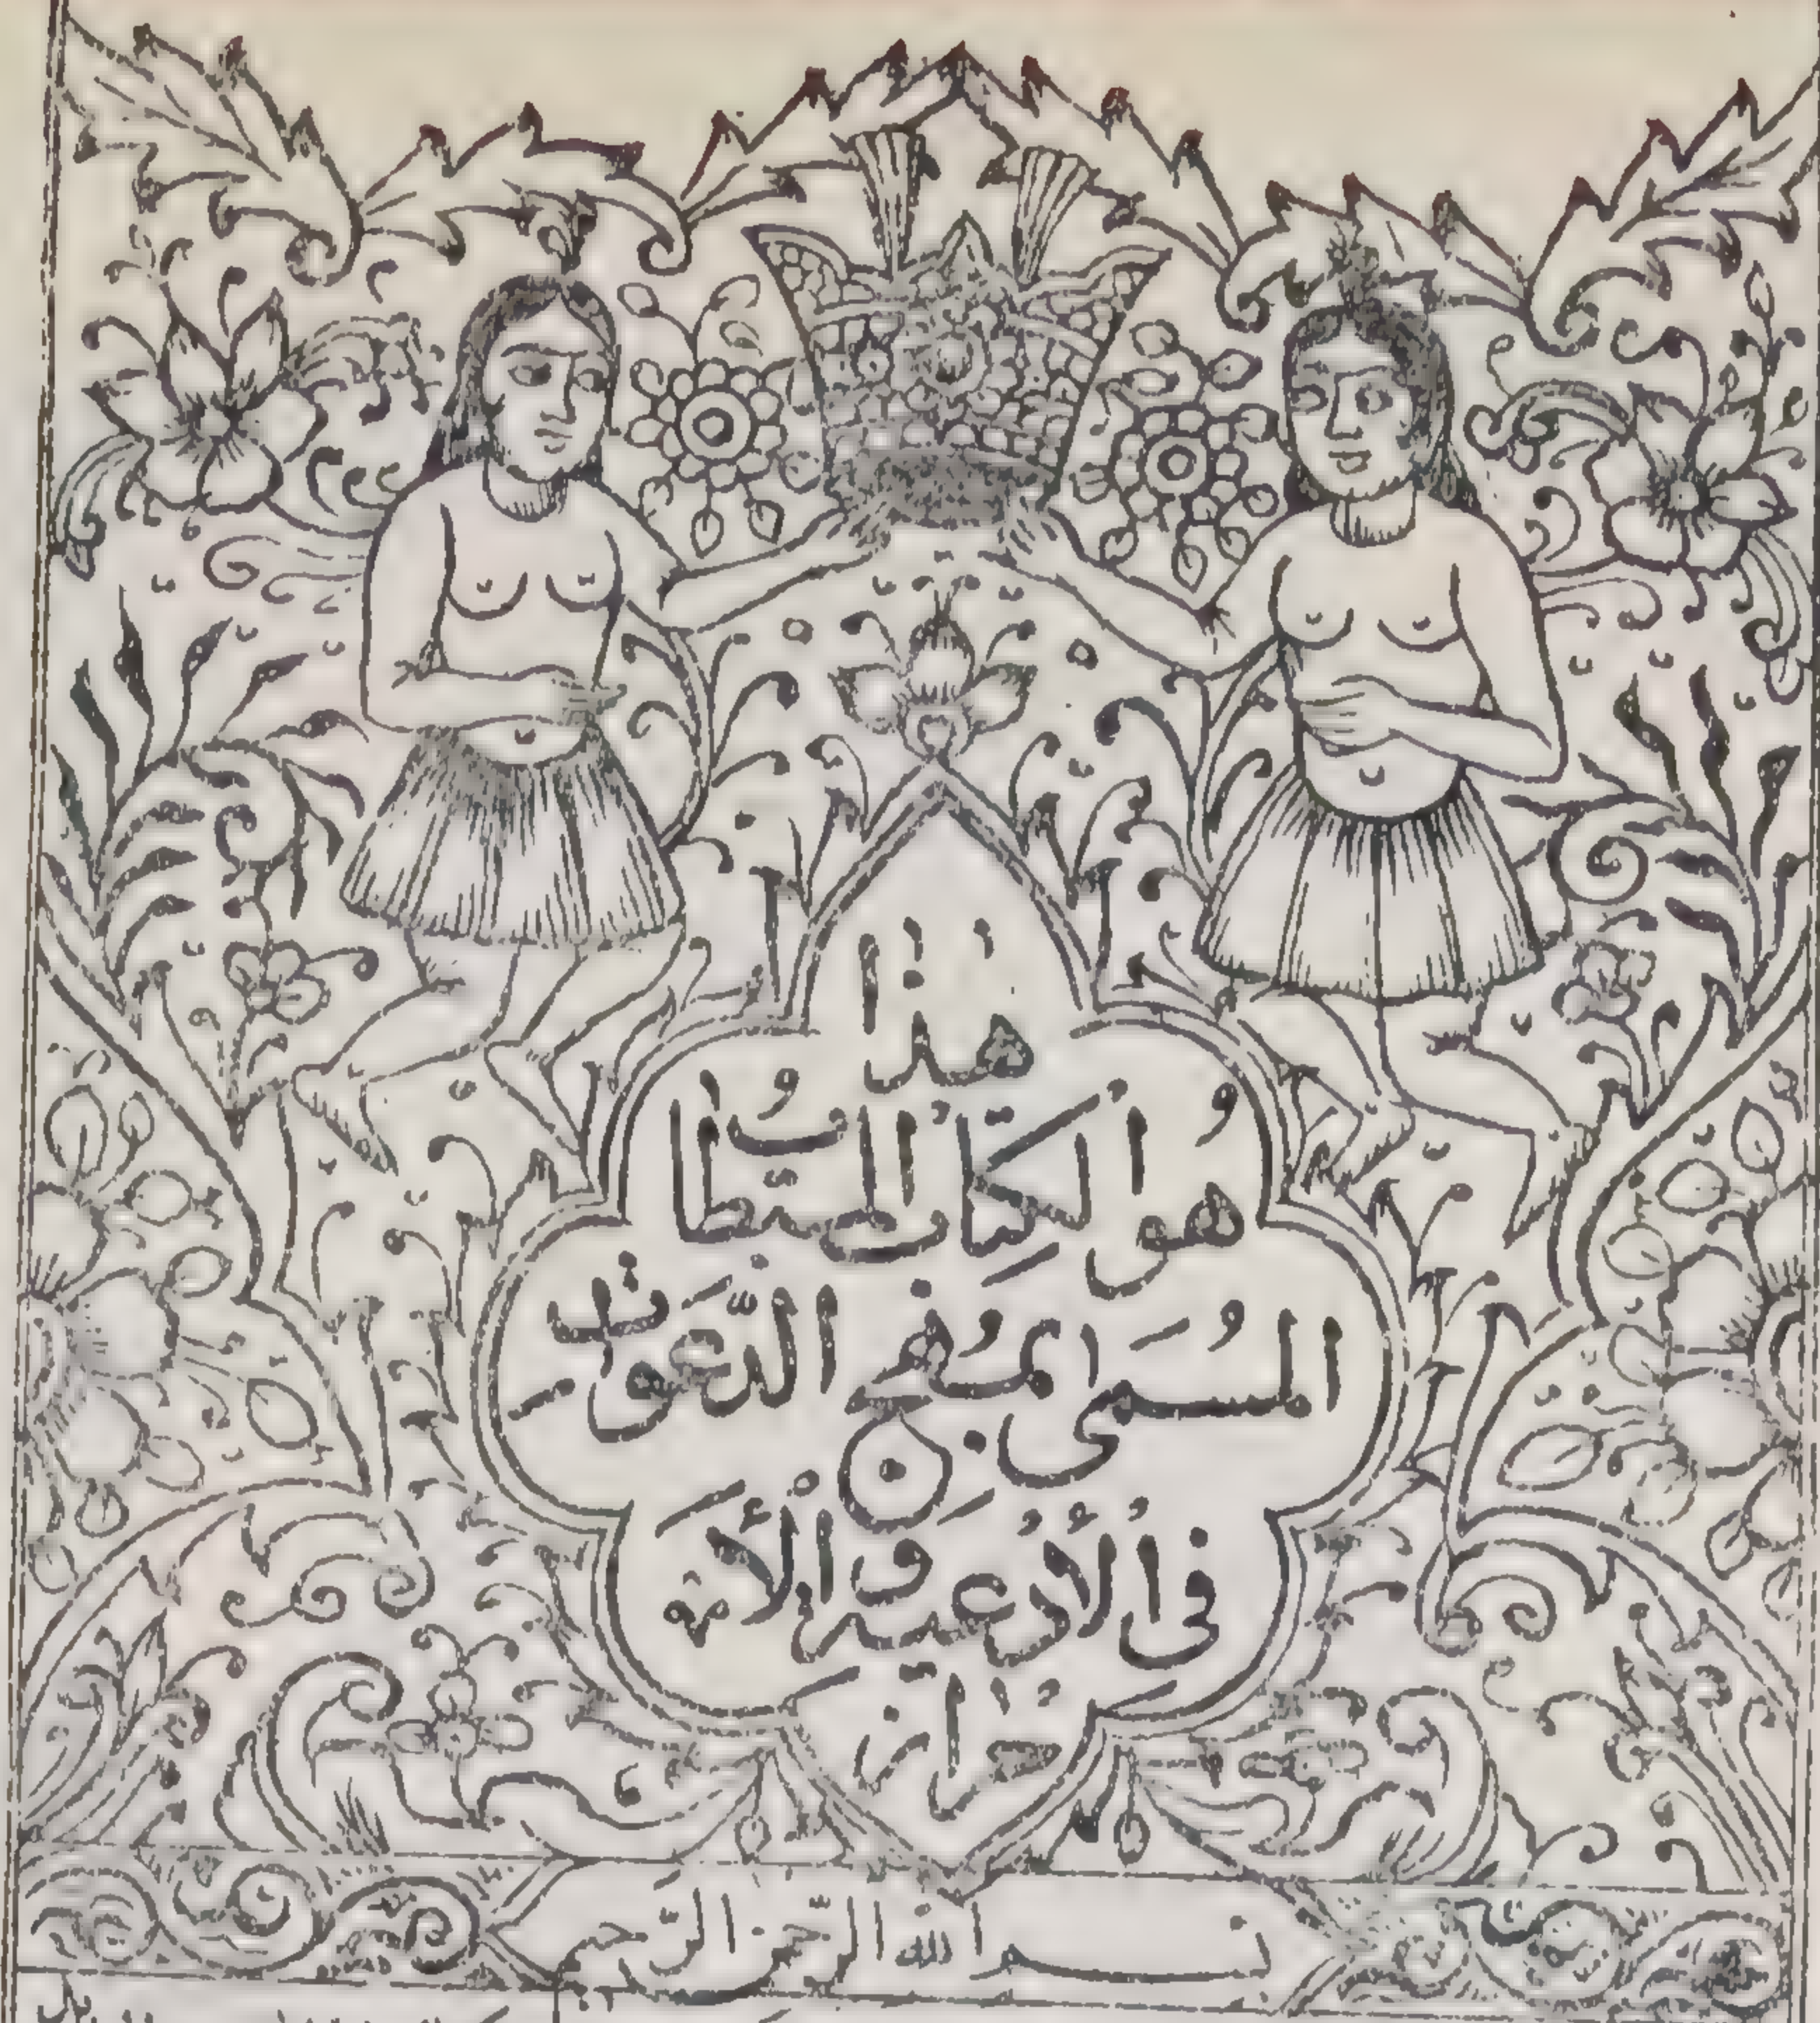 هٰذا
هُوَ الكِتابُ المُستَطابُ
المُسَمّى بمُهَج الدَّعَوات
فى الأدعية و
بسم الله الرّحمن الرّحيم